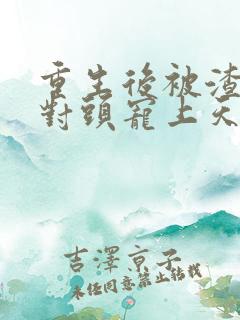 重生後被渣
對頭寵上天
吉澤京子
未經同意禁止轉載